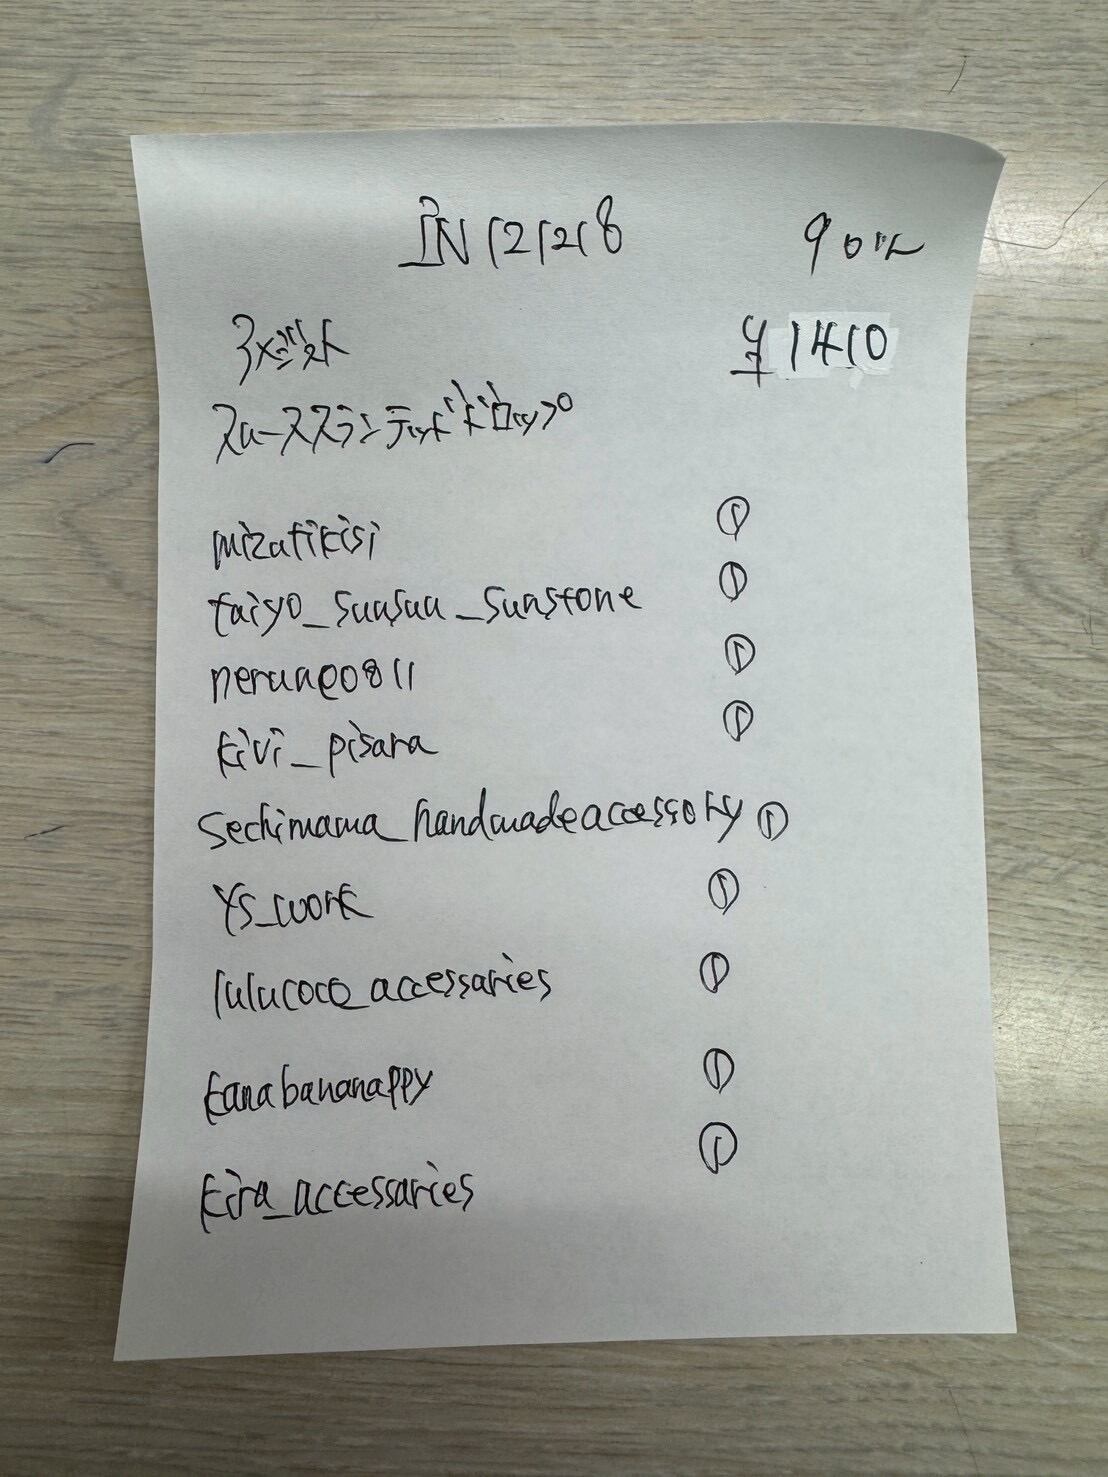 IN 121218
¥1410
スムーススランテッドドロップ
mizatikisi ①
taiyo_suusuu_sunstone ①
nerune0811 ①
kivi_pisara ①
sechimama_handmadeaccessory ①
ys_work ①
lulucoco_accessaries ①
kanabananappy ①
kira_accessaries ①